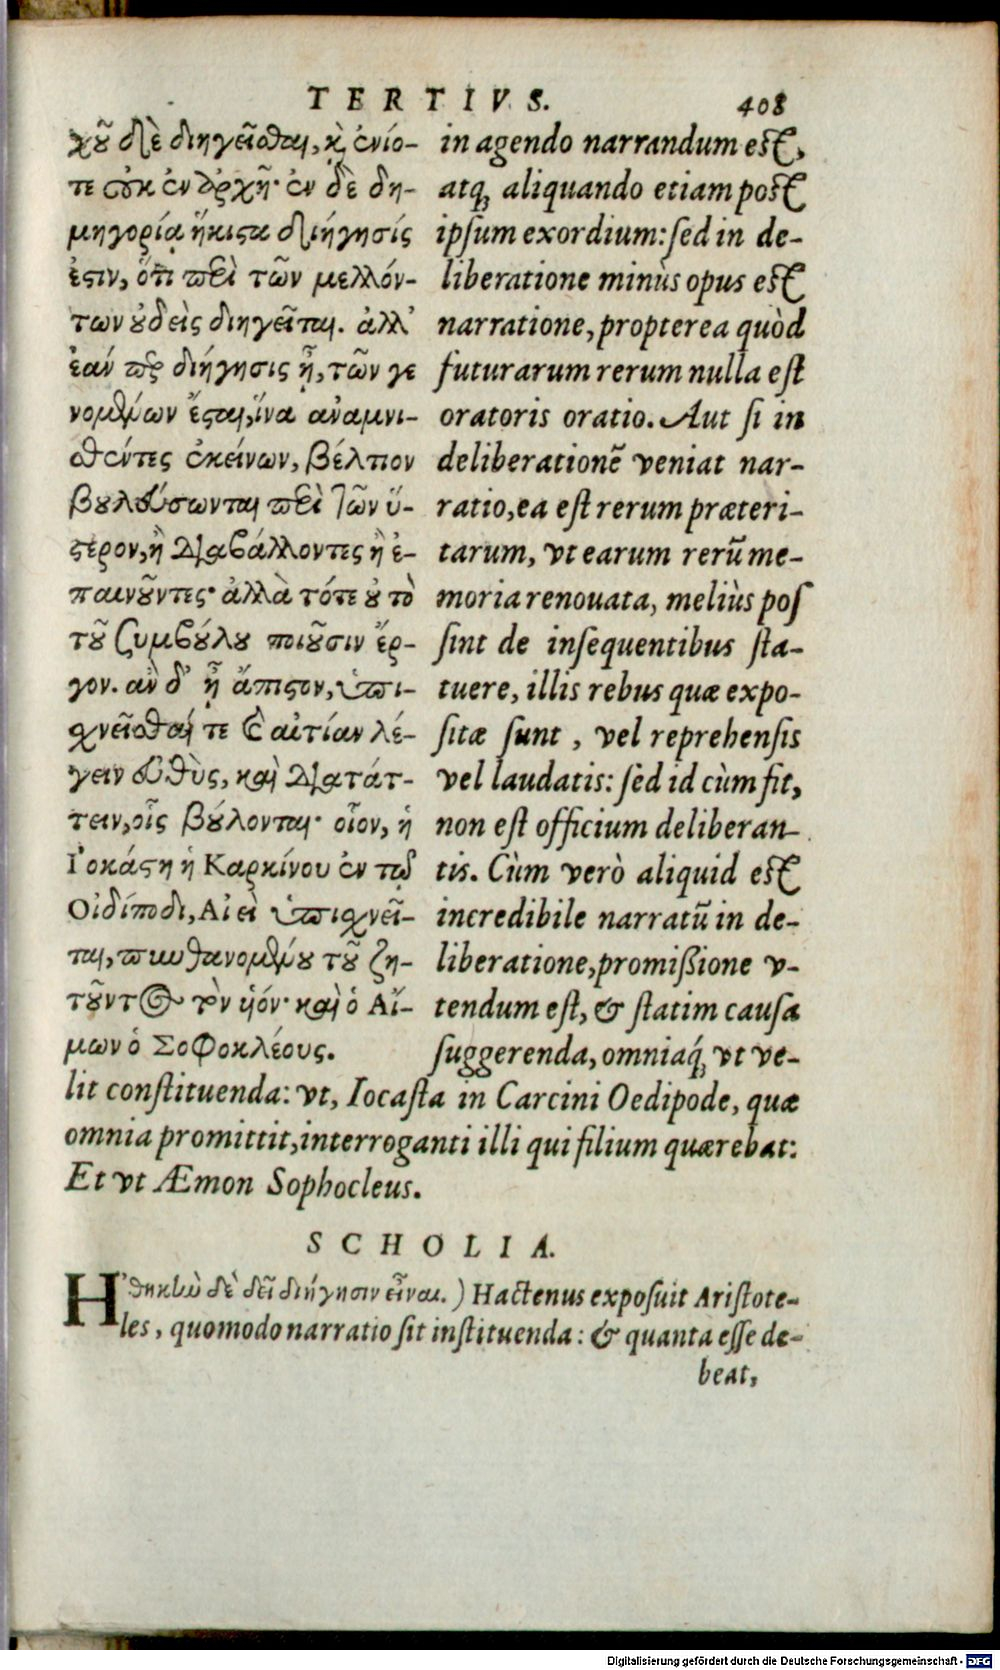 TERTIVS. 408
χοῦ δὲ διηγεῖσθαι, κὶ ἐνίο-
τε οὐκ ἐν ἀρχῇ· ἐν δὲ δη-
μηγορίᾳ ἥκιστα διήγησίς
ἐστιν, ὅτι περὶ τῶν μελλόν-
των οὐδεὶς διηγεῖται. ἀλλ'
ἐάν περ διήγησις ᾖ, τῶν γε
νομένων ἔσται, ἵνα ἀναμνι-
σθέντες ἐκείνων, βέλτιον
βουλεύσωνται περὶ τῶν ὕ-
στερον, ἢ διαβάλλοντες ἢ ἐ-
παινοῦντες· ἀλλὰ τότε οὐ τὸ
τοῦ ξυμβούλου ποιοῦσιν ἔρ-
γον. ἂν δ' ᾖ ἄπιστον, ὑπι-
σχνεῖσθαί τε καὶ αἰτίαν λέ-
γειν εὐθὺς, καὶ διατάτ-
τειν, οἷς βούλονται· οἷον, ἡ
Ἰοκάστη ἡ Καρκίνου ἐν τῷ
Οἰδίποδι, Αἰεὶ ὑπισχνεῖ-
ται, πυνθανομένου τοῦ ζη-
τοῦντος τὸν ὑιόν· καὶ ὁ Αἵ-
μων ὁ Σοφοκλέους.
in agendo narrandum est,
atq; aliquando etiam post
ipsum exordium: sed in de-
liberatione minùs opus est
narratione, propterea quòd
futurarum rerum nulla est
oratoris oratio. Aut si in
deliberationē veniat nar-
ratio, ea est rerum præteri-
tarum, vt earum rerū me-
moria renouata, meliùs pos
sint de insequentibus sta-
tuere, illis rebus quæ expo-
sitæ sunt, vel reprehensis
vel laudatis: sed id cùm fit,
non est officium deliberan-
tis. Cùm verò aliquid est
incredibile narratū in de-
liberatione, promißione v-
tendum est, & statim causa
suggerenda, omniaq́; vt ve-
lit constituenda: vt, Iocasta in Carcini Oedipode, quæ
omnia promittit, interroganti illi qui filium quærebat:
Et vt Æmon Sophocleus.
SCHOLIA.
Ἠθικὴν δὲ δεῖ διήγησιν εἶναι.) Hactenus exposuit Aristote-
les, quomodo narratio sit instituenda: & quanta esse de-
beat,
Digitalisierung gefördert durch die Deutsche Forschungsgemeinschaft - DFG